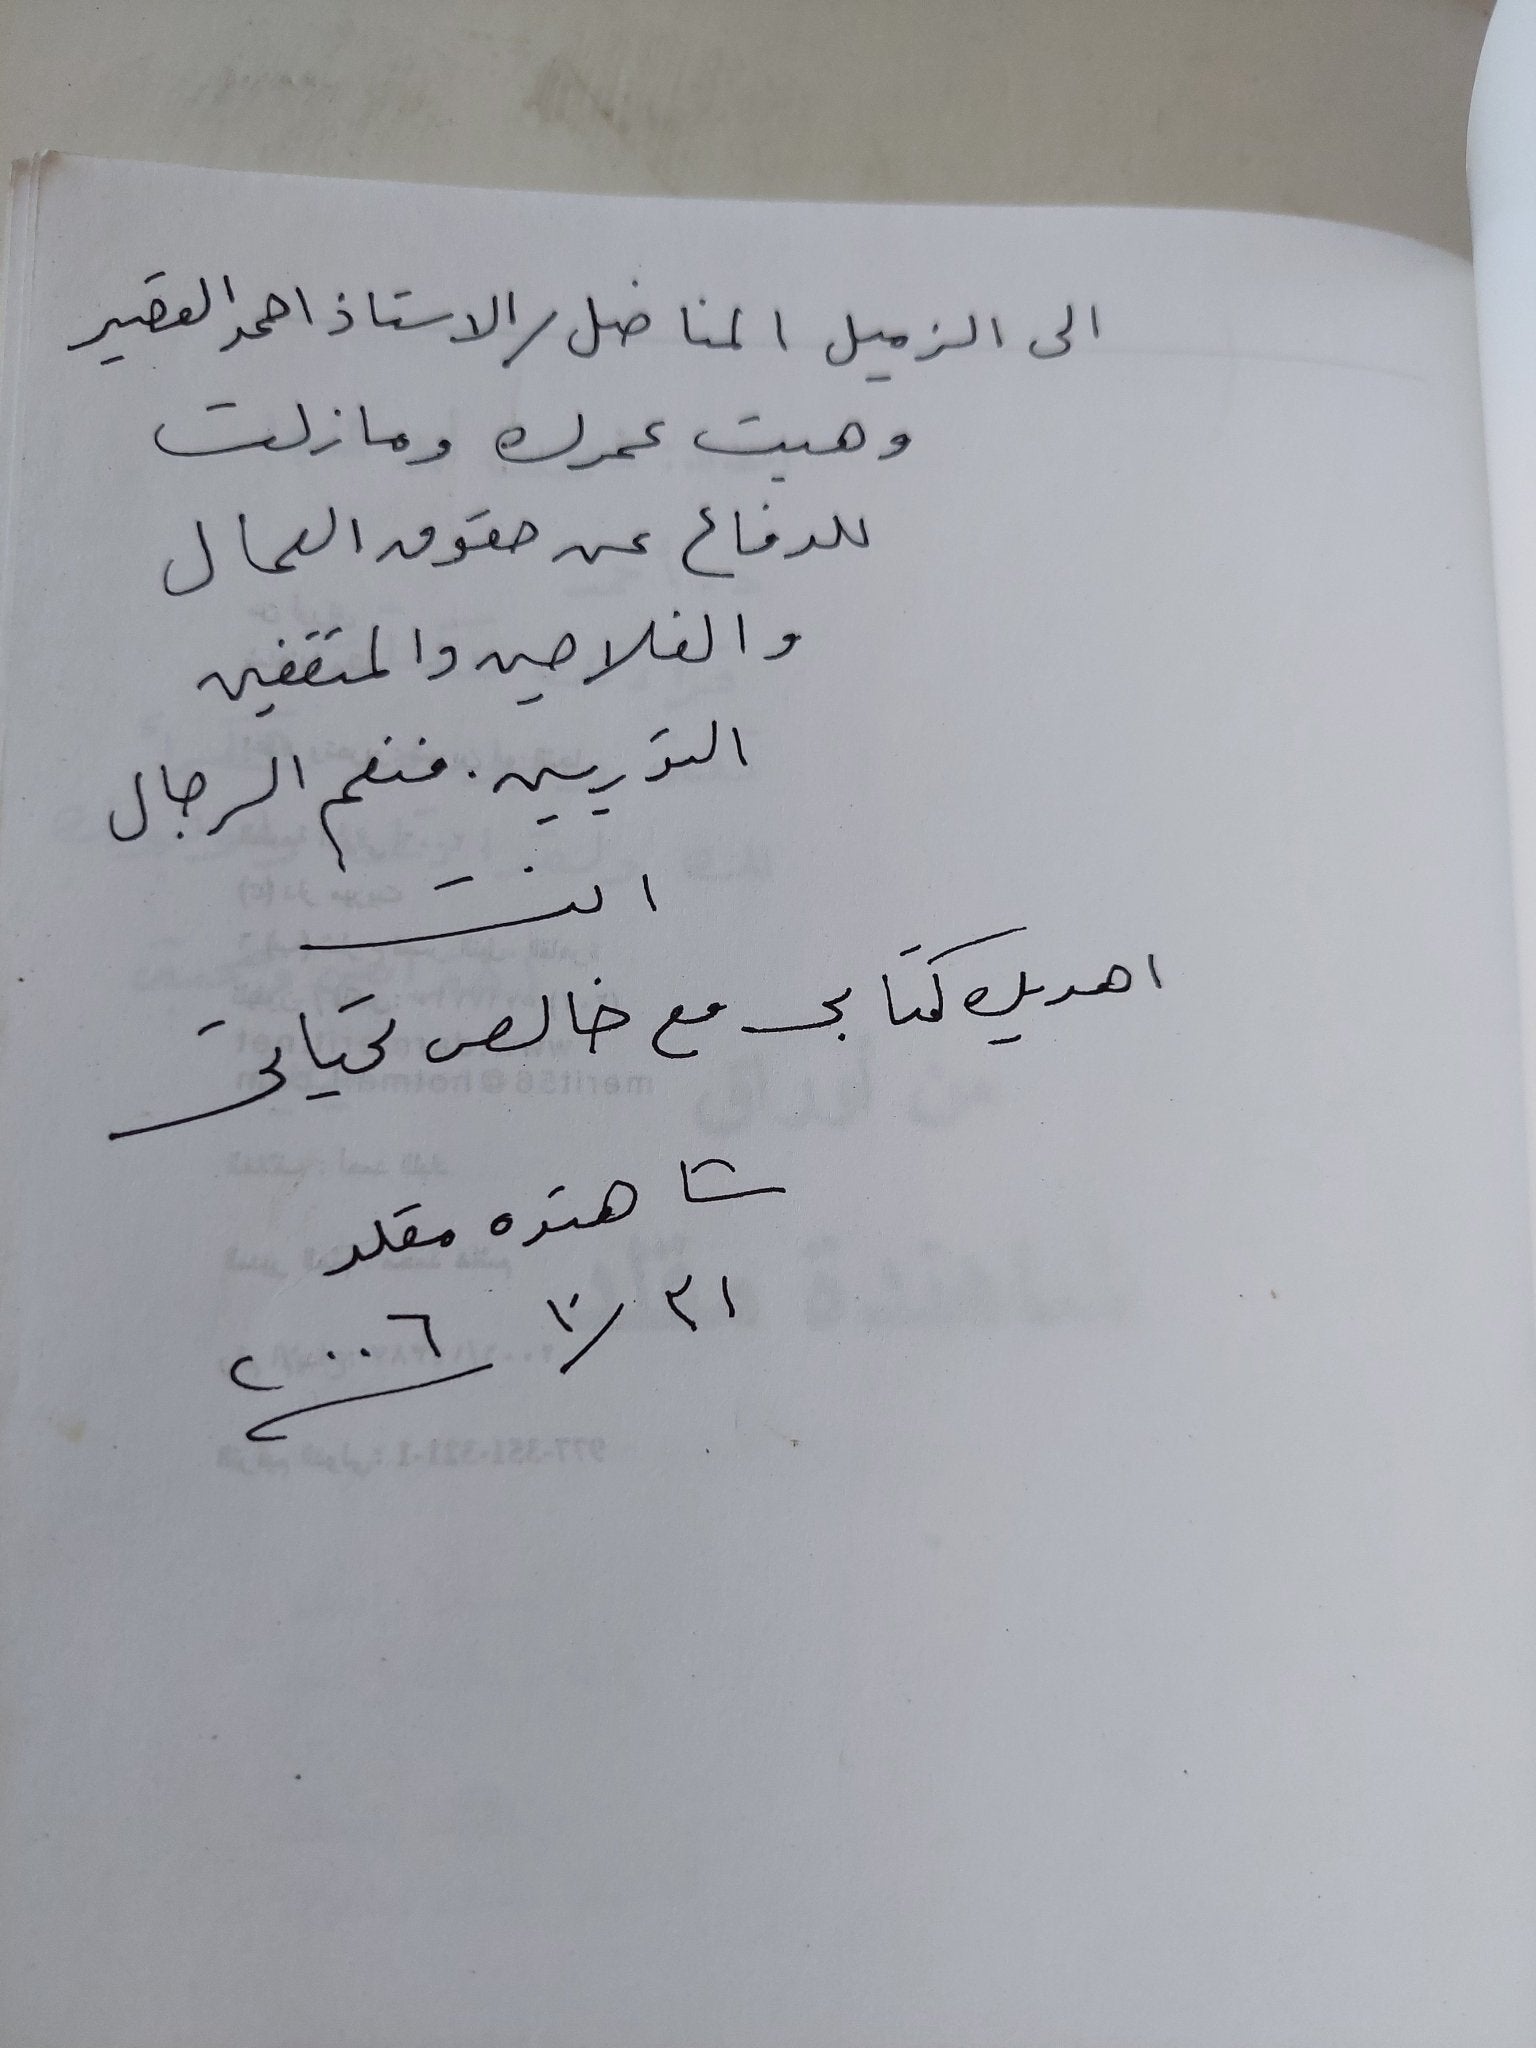 الى الزميل المناضل/ الاستاذ احمد القصير
وهبت عمرك ومازلت
للدفاع عن حقوق العمال
والفلاحين والمثقفين
الثوريين. فنعم الرجال
انت
اهديك كتابى مع خالص تحياتى
شاهنده مقلد
٣١ / ١٠ ٢٠٠٦